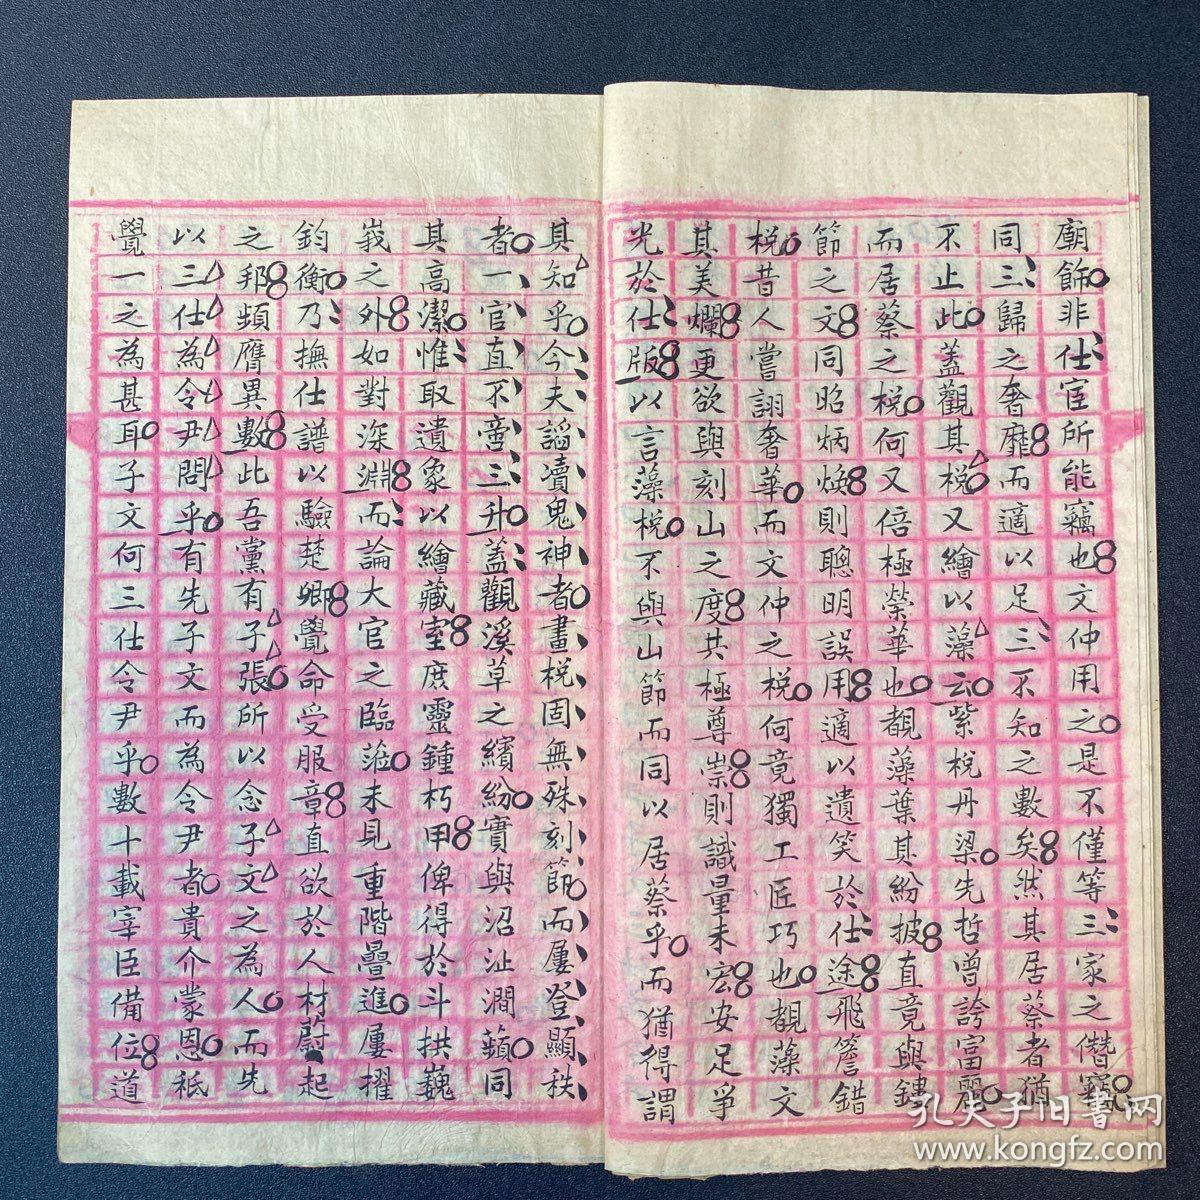 廟飾非仕宦所能竊也文仲用之是不僅等三家之僭竊
同三歸之奢靡而適以足三不知之數矣然其居蔡者猶
不止此蓋觀其梲又繪以藻云紫梲丹梁先哲曾誇富麗
而居蔡之梲何又倍極榮華也覩藻葉其紛披直竟與鏤
節之文同昭炳煥則聰明誤用適以遺笑於仕途飛簷錯
梲昔人嘗詡奢華而文仲之梲何竟獨工匠巧也覩藻文
其美爛更欲與刻山之度共極尊崇則識量未宏安足爭
光於仕版以言藻梲不與山節而同以居蔡乎而猶得謂
其知乎今夫謟瀆鬼神者畫梲固無殊刻節而屢登顯秩
者一官直不啻三升蓋觀溪草之繽紛實與沼沚澗蘋同
其高潔惟取遺象以繪藏室庶靈鍾朽甲俾得於斗拱巍
峩之外如對深淵而論大官之臨涖未見重階疊進屢擢
鈞衡乃撫仕譜以驗楚卿覺命受服章直欲於人材蔚起
之邦頻膺異數此吾黨有子張所以念子文之為人而先
以三仕為令尹問乎有先子文而為令尹者貴介蒙恩祇
覺一之為甚耳子文何三仕令尹乎數十載宰臣備位道
孔夫子旧书网
www.kongfz.com